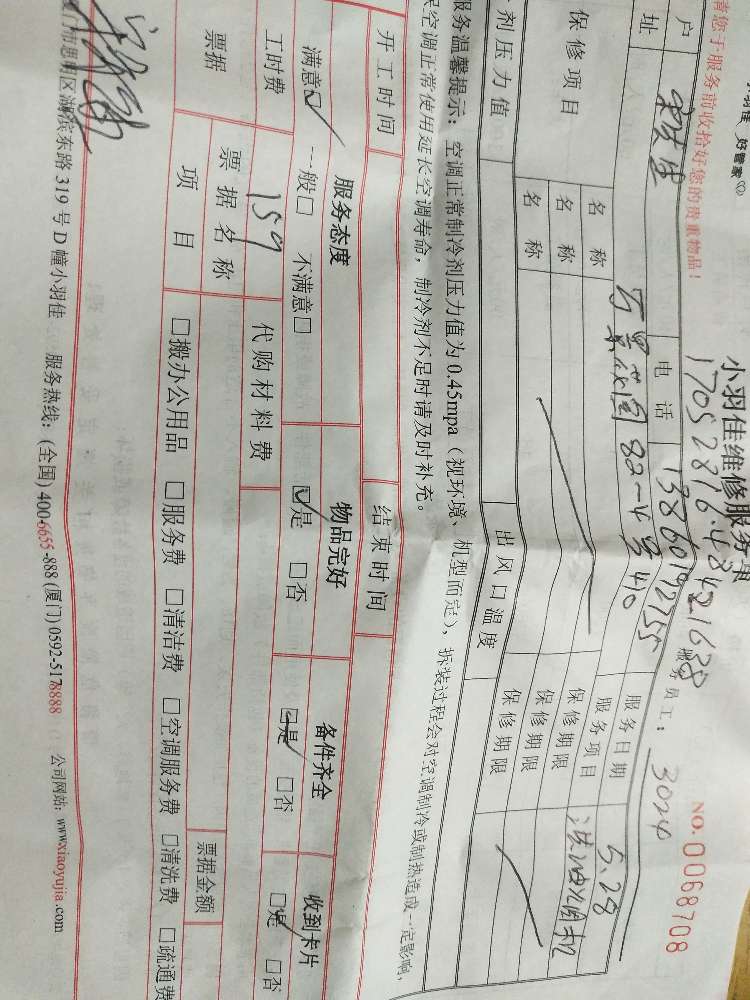 小羽佳 好管家
小羽佳维修服务单
NO.0068708
请您于服务前收拾好您的贵重物品！
17052876·4842 1638
服务员工： 3024
户
电话 13860192755
服务日期 5.28
址 万景花园 82-4号 410
服务项目 洗油烟机
保修项目
名称
保修期限
名称
保修期限
名称
保修期限
剂压力值
出风口温度
服务温馨提示：空调正常制冷剂压力值为0.45mpa（视环境、机型而定），拆装过程会对空调制冷或制热造成一定影响，
保空调正常使用延长空调寿命，制冷剂不足时请及时补充。
开工时间
结束时间
服务态度
物品完好
备件齐全
收到卡片
满意☑ 一般□ 不满意□
☑是 □否
☑是 □否
☑是 □否
工时费 159
代购材料费
票据
票据名称
票据金额
项目
□搬办公用品 □服务费 □清洁费 □空调服务费 □清洗费 □疏通费
厦门市思明区湖滨东路319号D幢小羽佳 服务热线：(全国) 400-6655-888 (厦门) 0592-5178888 公司网站：www.xiaoyujia.com